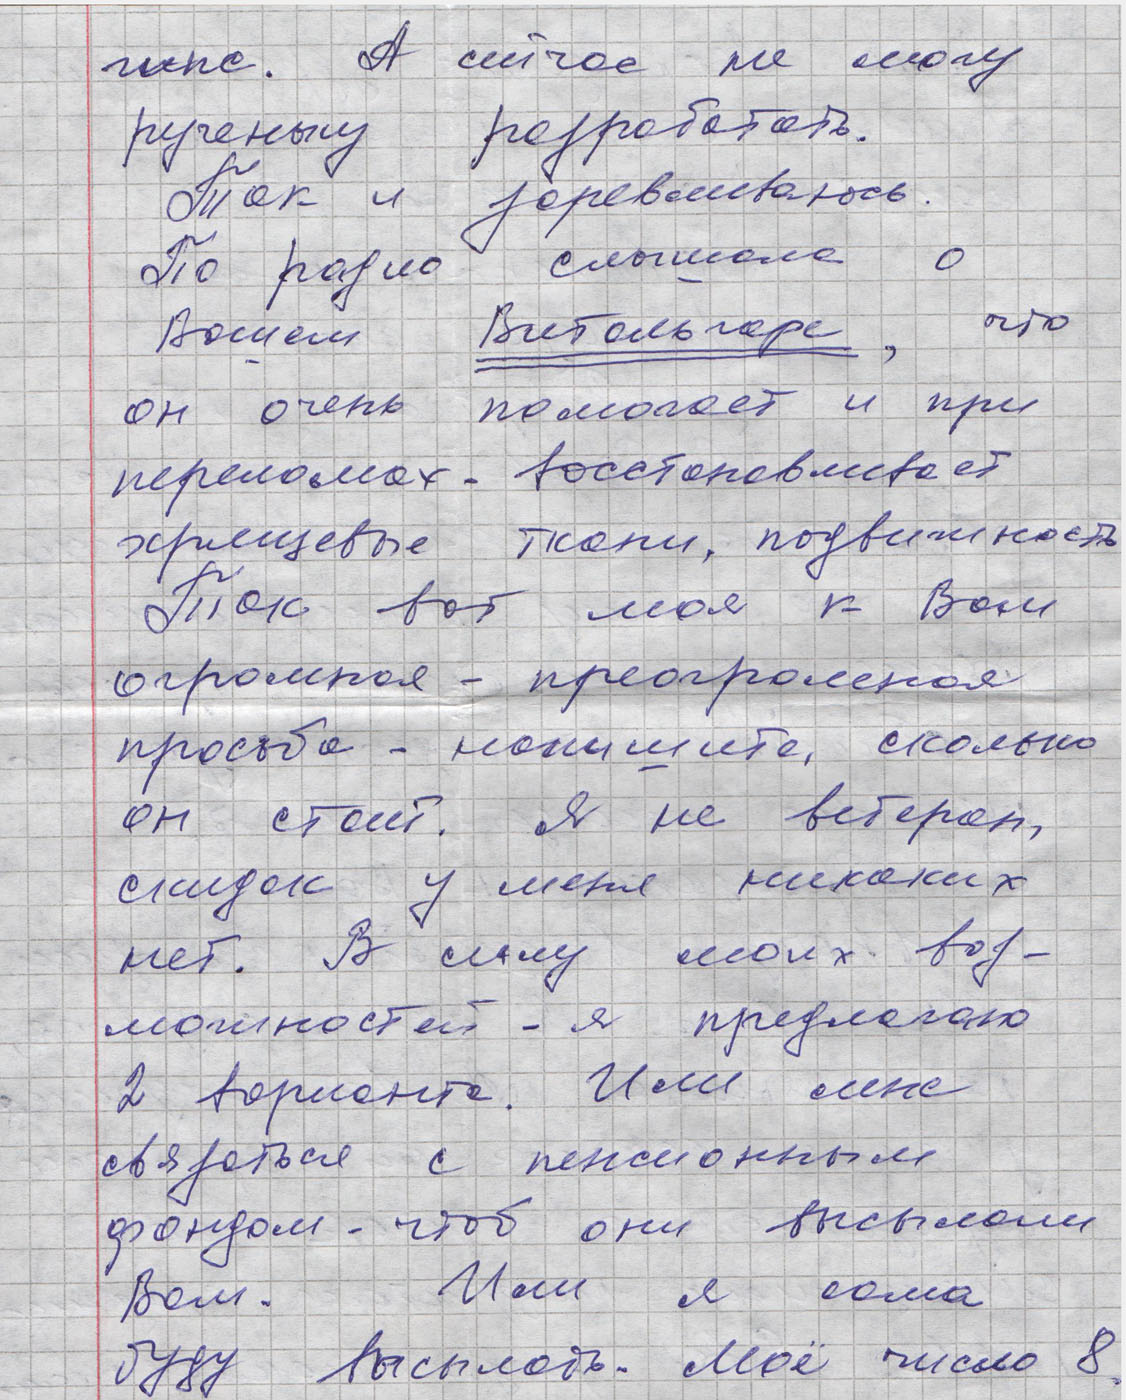 гипс. А сейчас не могу
рученьку разработать.
Так и зареваиваюсь.
По радио слышала о
Вашем Витальгаре, что
он очень помогает и при
переломах - восстанавливает
хрящевые ткани, подвижность
Так вот моя к Вам
огромная - преогромная
просьба - напишите, сколько
он стоит. Я не ветеран,
скидок у меня никаких
нет. В силу моих воз-
можностей - я предлагаю
2 варианта. Или мне
связаться с пенсионным
фондом - чтоб они высылали
Вам. Или я сама
буду высылать. Моё число 8.